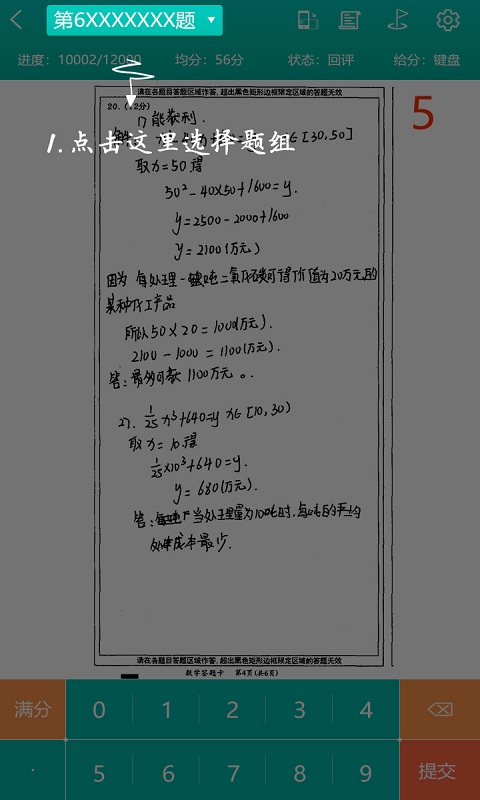 第6XXXXXXX题
进度：10002/12000 均分：56分 状态：回评 给分：键盘
请在各题目答题区域作答，超出黑色矩形边框限定区域的答题无效
20.(12分)
5
1.点击这里选择题组
1) 能获利.
[30,50]
取x=50得
50²-40×50+1600=y.
y=2500-2000+1600
y=2100(万元)
因为 每处理一吨二氧化碳可得价值为20万元的
某种化工产品
所以50×20=1000(万元).
2100-1000=1100(万元).
答:最多可获1100万元。
27. 1/25 x³+640=y x∈[10,30)
取x=10得
1/25×10³+640=y.
y=680(万元).
答: 当处理量为10吨时,每吨的平均
处理成本最少.
请在各题目答题区域作答，超出黑色矩形边框限定区域的答题无效
数学答题卡 第4页(共6页)
满分 0 1 2 3 4
. 5 6 7 8 9 提交